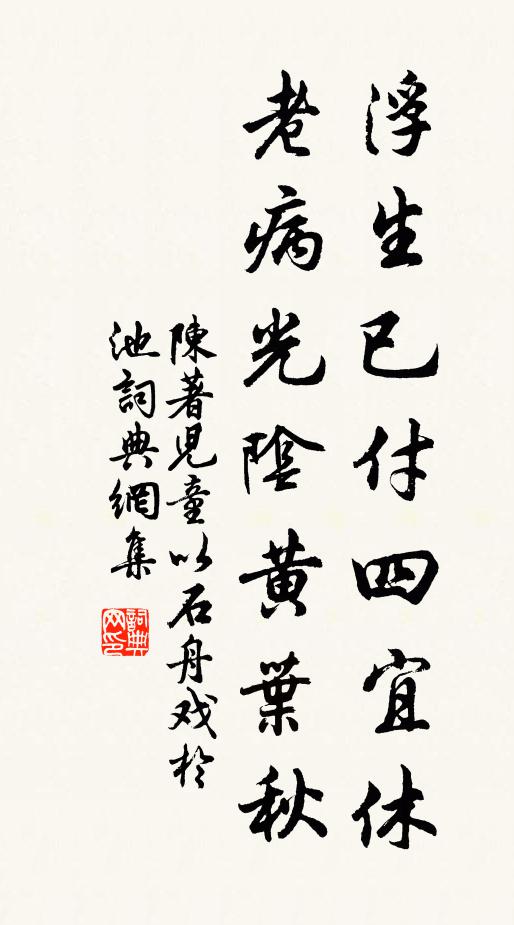 浮生已付四宜休
老病光陰黃葉秋
陳著兒童以石舟戏於
池詞典網集
詞典
网印